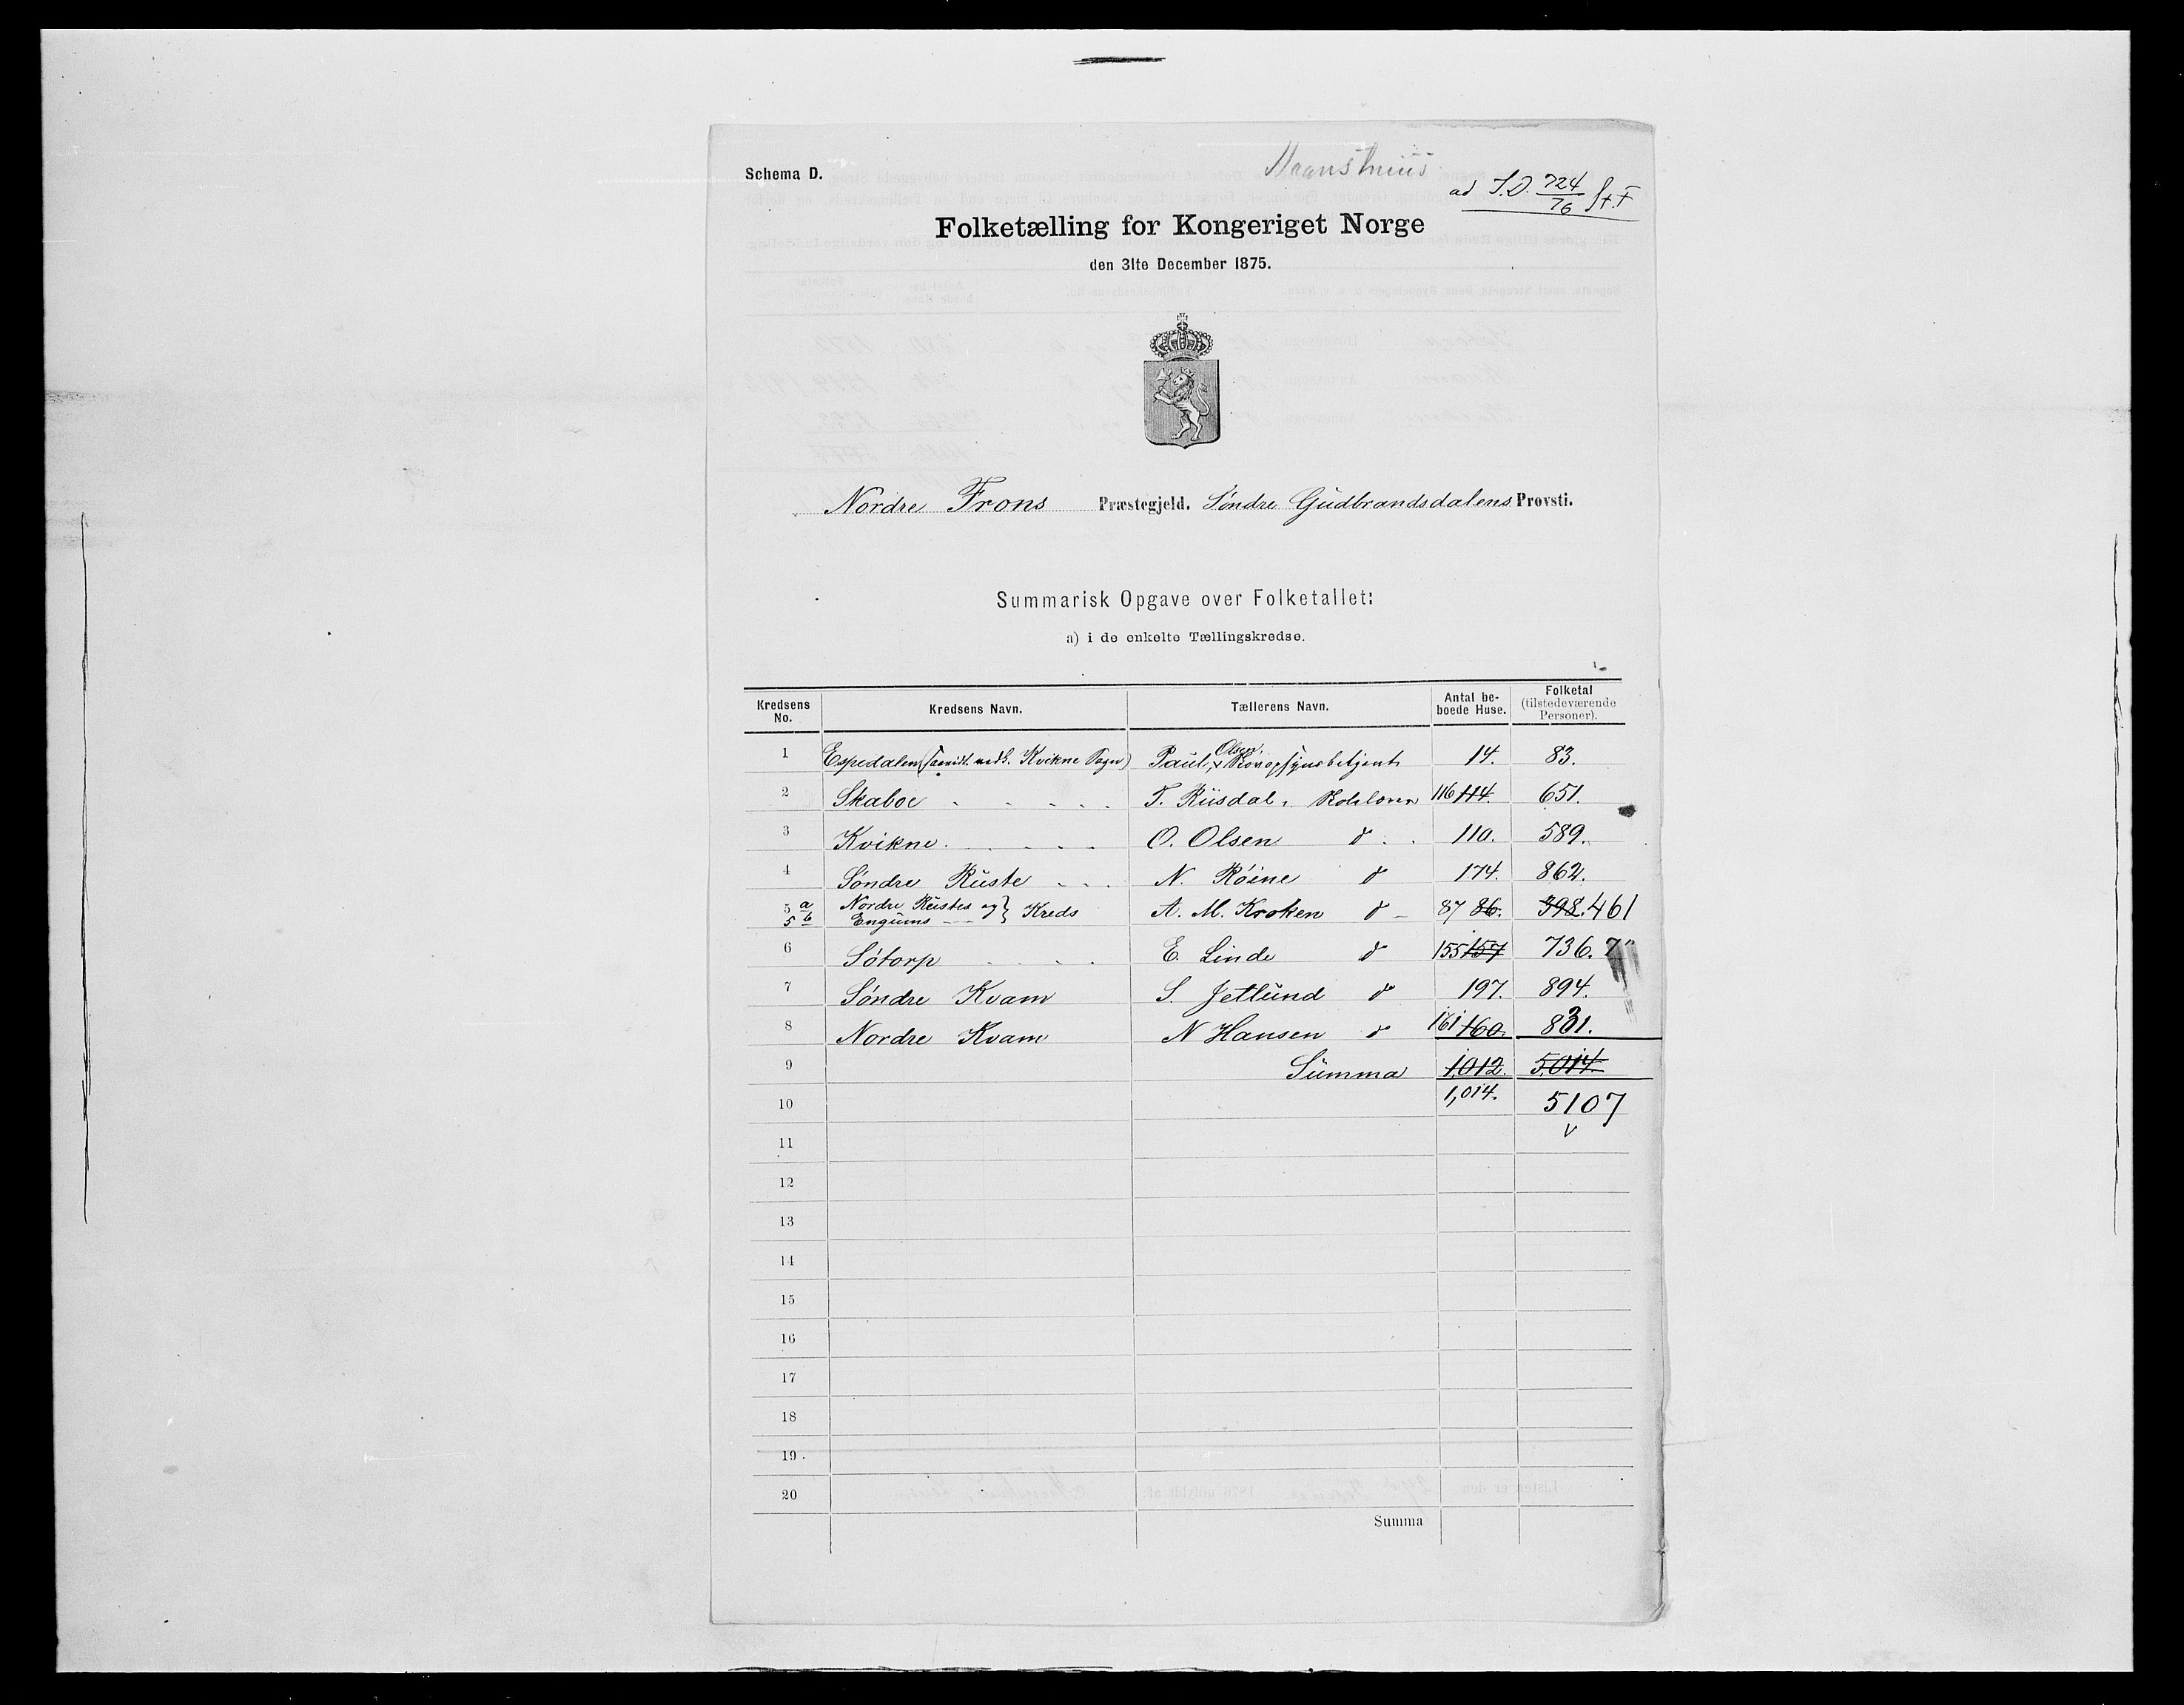 Schema D.
ad I.D. 724/76 St. F
Folketælling for Kongeriget Norge
den 31te December 1875.
Nordre Frons Præstegjeld. Søndre Gudbrandsdalens Provsti.
Summarisk Opgave over Folketallet:
a) i de enkelte Tællingskredse.
Kredsens No. Kredsens Navn. Tællerens Navn. Antal beboede Huse. Folketal (tilstedeværende Personer).
1 Espedalen (samt. nedh. Kvikne Sogn) Paul Olsen, Skovopsynsbetjent 14. 83.
2 Skaboe T. Rusdal, Skolelærer 116 114. 651.
3 Kvikne O. Olsen do 110. 589.
4 Søndre Ruste N. Röine do 174. 862.
5 a Nordre Rustes og
5 b Engums } Kreds A. M. Kroken do 87 86. 398. 461
6 Sötorp E. Linde do 155 157 736.
7 Søndre Kvam S. Jetlund do 197. 894.
8 Nordre Kvam N Hansen do 161 160. 831.
9 Summa 1,012. 5,014.
10 1,014. 5107
11
12
13
14
15
16
17
18
19
20
Summa